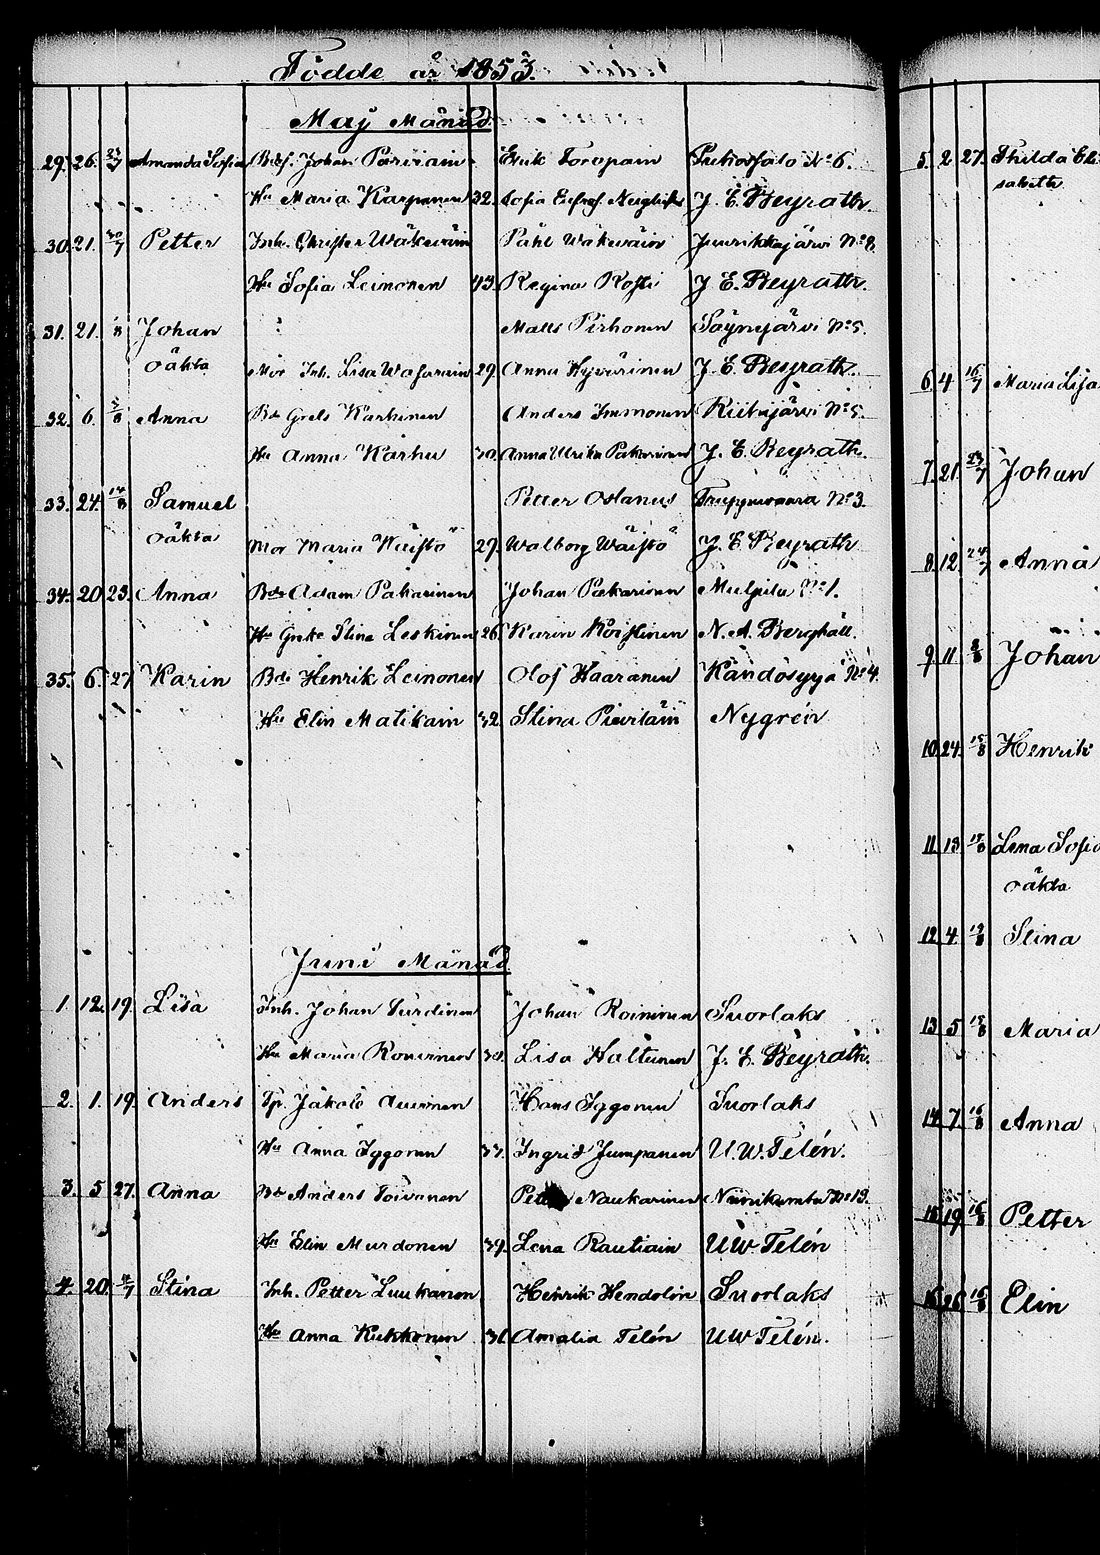 Födde år 1853.
Maj Månad.
29. 26. 23/7 Amanda Sofia Bdes. Johan Parviain Erik Toropain No 6.
Hu Maria Karpanen 32. Sofia J. E. Beyrath.
30. 21. 30/7 Petter Inh. Christer Wäkeväin Påhl Wäkeväin Juurikkajärvi No 8.
Hu Sofia Leimonen 43. Regina Kosti J. E. Beyrath.
31. 21. /8 Johan Matts Pirhonen Söynejärvi No 5.
oäkta Mor Inh. Lisa 29. Anna Hyvärinen J. E. Beyrath.
32. 6. 5/8 Anna Bde Grels Karhinen Anders Immonen No 5.
Hu Anna Karhu 30. Anna Ulrika Pakarinen J. E. Beyrath.
33. 24. 14/8 Samuel Petter No 3.
oäkta Mor Maria Wäistö 29. Walborg Wäistö J. E. Beyrath
34. 20. 23. Anna Bde Adam Pakarinen Johan Pakarinen Mulpila No 1.
Hu Greta Stina Leskinen 26. Karin Roistinen N. A. Berghäll.
35. 6. 27 Karin Bde Henrik Leinonen Olof Haaranen No 4.
Hu Elin Matikain 32. Stina Nygrén
Juni Månad.
1. 12. 19. Lisa Inh. Johan Turdinen Johan Roininen Suorlaks
Hu Maria 38. Lisa Haltunen J. E. Beyrath.
2. 1. 19. Anders Tp. Jakob Auvinen Hans Iggonen Suorlaks
Hu Anna Iggonen 33. Ingrid Jumpanen U. W. Telén.
3. 5. 27. Anna Bde Anders Toivanen Naukarinen Niinikumbu No 13.
Hu Elin Murdonen 39. Lena Rautiain UW Telén
4. 20. 4/7 Stina Inh. Petter Luukanen Henrik Hendolin Suorlaks
Hu Anna Kukkonen 31. Amalia Telén UW Telén.
5. 2. 27. Thilda Eli
sabeth
6. 4. 16/7 Maria Lisa
7. 21. 23/7 Johan
8. 12. 24/7 Anna
9. 11. 8/8 Johan
10. 24. 15/8 Henrik
11. 13. 17/8 Lena Sofia
oäkta
12. 4. 19/8 Stina
13. 5. 15/8 Maria
14. 7. 16/8 Anna
15. 19. 16/8 Petter
16. 26. 16/8 Elin